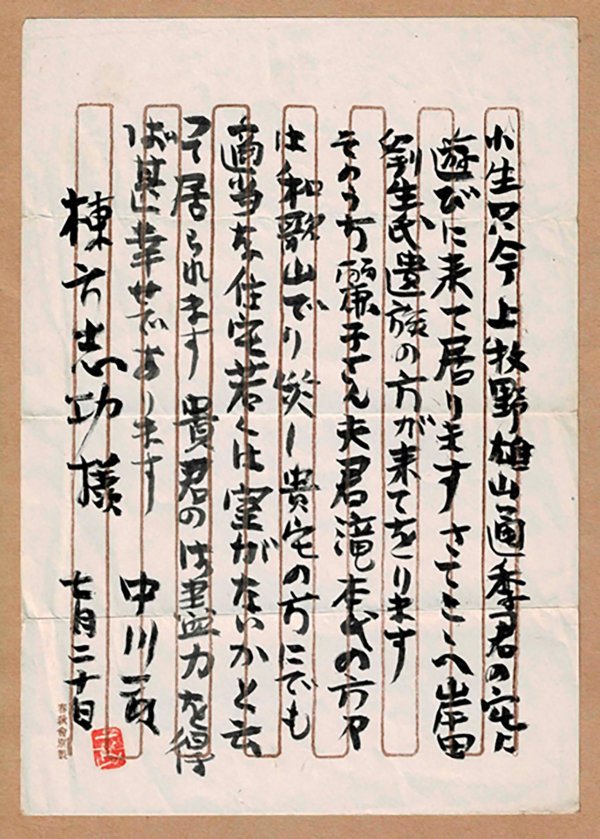 小生只今上牧野雄山通季君の宅に
遊びに来て居ります さてこゝへ岸田
劉生氏遺族の方が来てをります
そのうち麗子さん夫君滝本氏の方
は和歌山でり災し貴宅の方にでも
適当な住宅若くは室がないかと云
って居られます 貴君の御尽力を得
ば甚幸せであります
中川一政
七月二十日
棟方志功様